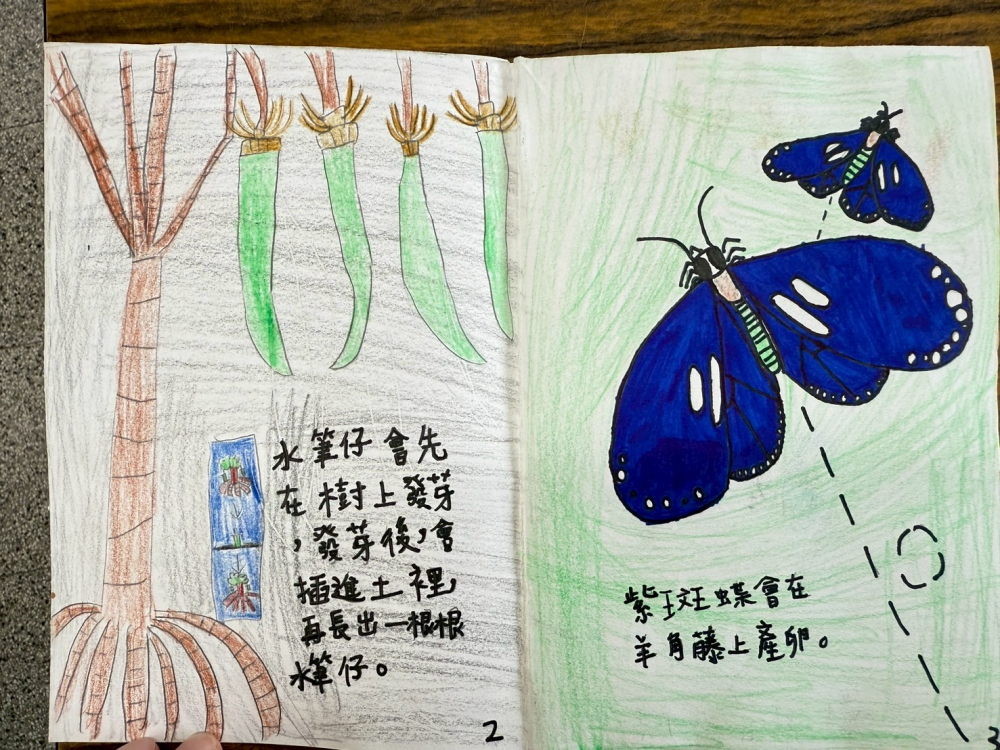 水筆仔會先
在樹上發芽
，發芽後，會
插進土裡，
再長出一根根
水筆仔。
2
紫斑蝶會在
羊角藤上產卵。